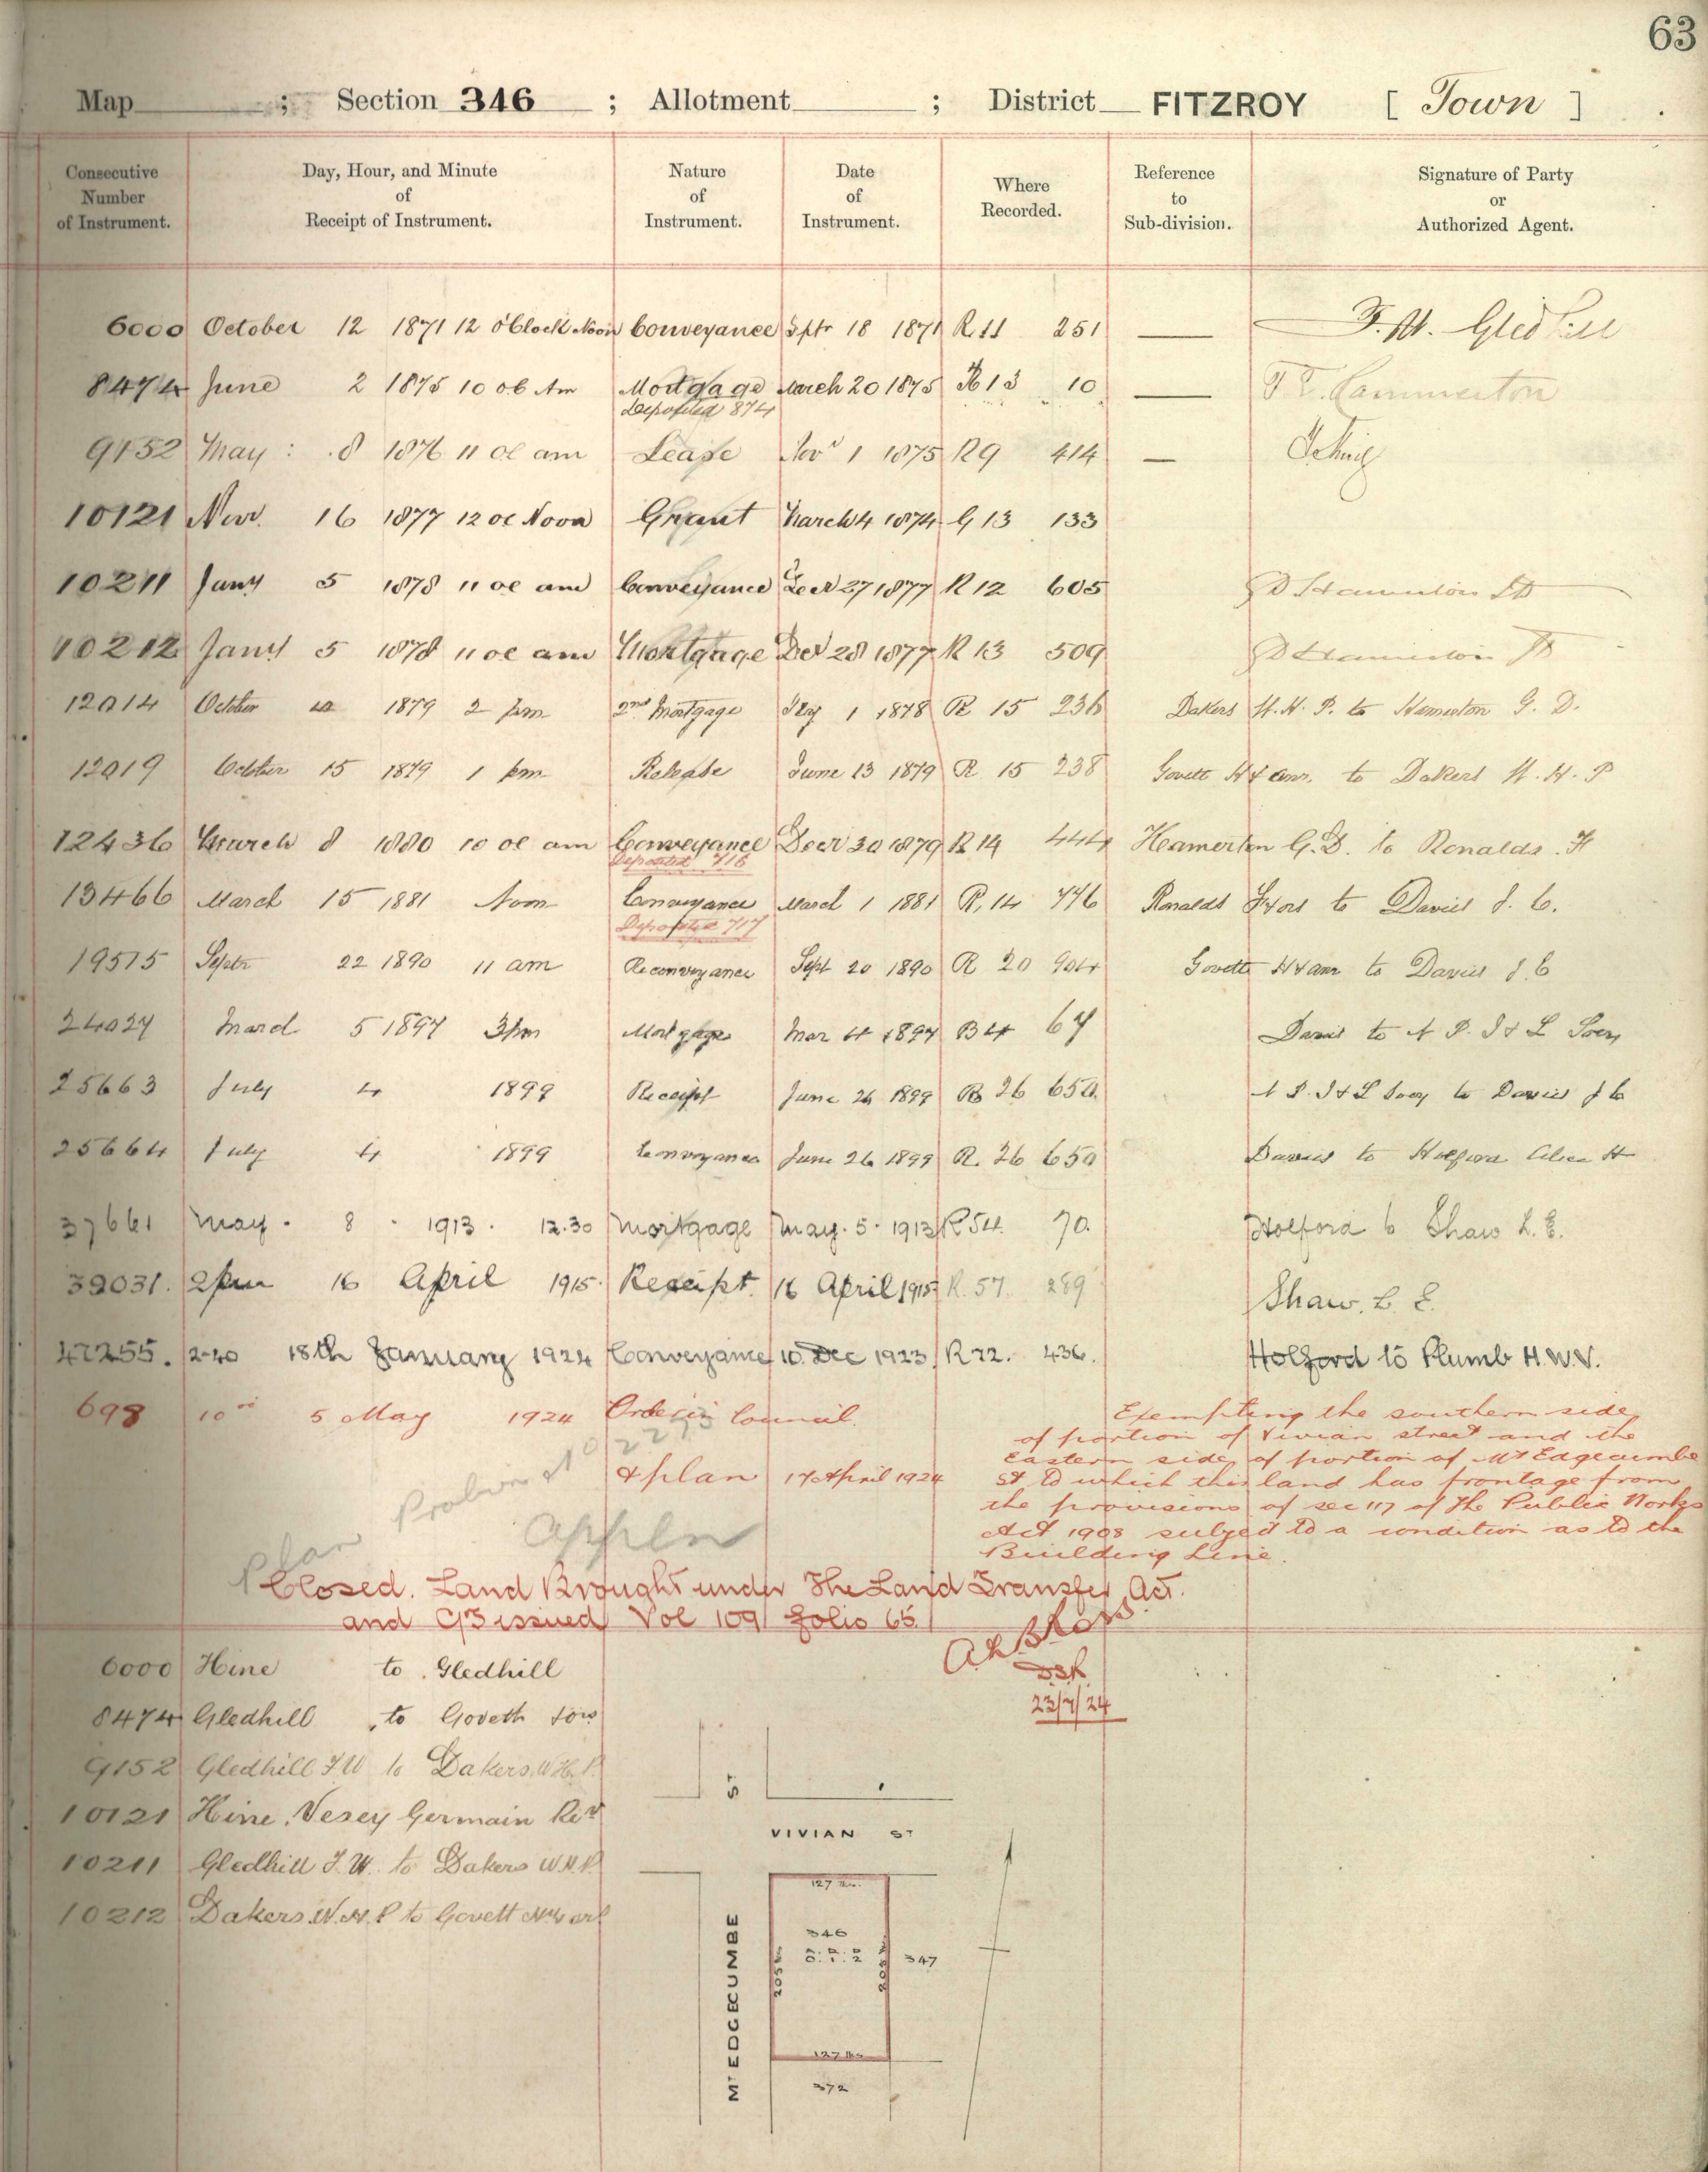 63
Map ; Section 346 ; Allotment ; District FITZROY [ Town ]
Consecutive Number of Instrument.
Day, Hour, and Minute of Receipt of Instrument.
Nature of Instrument.
Date of Instrument.
Where Recorded.
Reference to Sub-division.
Signature of Party or Authorized Agent.
6000 October 12 1871 12 o'Clock Noon Conveyance Septr 18 1871 R 11 251
8474 June 2 1875 10 Am Mortgage March 20 1875 R 13 10
Deposited 874
9152 May 8 1876 11 oc am Lease Novr 1 1875 R 9 414
10121 Nov. 16 1877 12 oc Noon Grant March 4 1874 G 13 133
10211 Jany 5 1878 11 oc am Conveyance Decr 27 1877 R 12 605
10212 Jany 5 1878 11 oc am Mortgage Decr 28 1877 R 13 509
12014 October 1879 2 pm 2nd Mortgage 1 1878 R 15 236 Dakers W. H. P. to Hamerton G. D.
12019 October 15 1879 1 pm Release June 13 1879 R 15 238 Govett & anr. to Dakers W. H. P
12436 March 8 1880 10 oc am Conveyance Decr 30 1879 R 14 444 Hamerton G. D. to Ronalds. H
Deposited 716
13466 March 15 1881 Noon Conveyance March 1 1881 R. 14 776 Ronalds & ors to Davies J. C.
Deposited 717
19515 Septr 22 1890 11 am Reconveyance Sept 20 1890 R 20 904 Govett & anr to Davies J. C
24027 March 5 1897 3 pm Mortgage Mar 4 1897 67 Davies to N P. I & L Socy
25663 July 4 1899 Receipt June 26 1899 R 26 650 N P. I & L Socy to Davies J C
25664 July 4 1899 Conveyance June 26 1899 R. 26 650 Davies to Holford Alice H
37661 May. 8. 1913. 12.30 Mortgage May. 5. 1913 R 54. 70. Holford to Shaw L. E.
39031. 2 pm 16 April 1915. Receipt. 16 April 1915 R. 57. 289 Shaw. L. E.
47255. 2-40 18th January 1924 Conveyance 10. Dec 1923 R 72. 436. Holford to Plumb H. W. V.
698 10 5 May 1924 Order in Council.
& plan 17 April 1924
Exempting the southern side
of portion of Vivian street and the
Eastern side of portion of Mt Edgecumbe
St to which this land has frontage from
the provisions of sec 117 of The Public Works
Act 1908 subject to a condition as to the
Building Line.
Plan
Appln
Closed. Land Brought under The Land Transfer Act.
and CT issued Vol 109 folio 65
23/7/24
6000 Hine to Gledhill
8474 Gledhill to Govett & ors
9152 Gledhill F W to Dakers W H. P.
10121 Hine, Vesey Germain Revd
10211 Gledhill F. W. to Dakers W H P
10212 Dakers W. H. P to Govett
ST
VIVIAN ST
127
346
0. 1. 2
347
MT EDGECUMBE
205
127
372